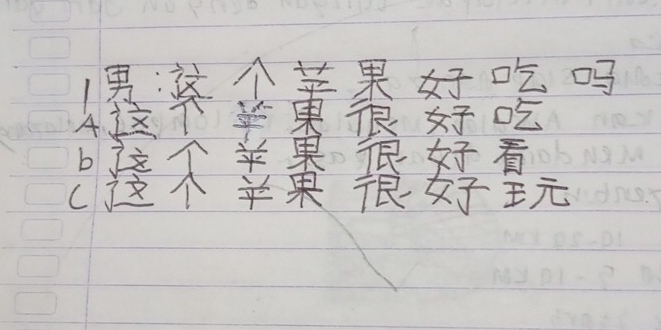 1 男:这个苹果好吃吗
A 这个苹果很好吃
b 这个苹果很好看
C 这个苹果很好玩